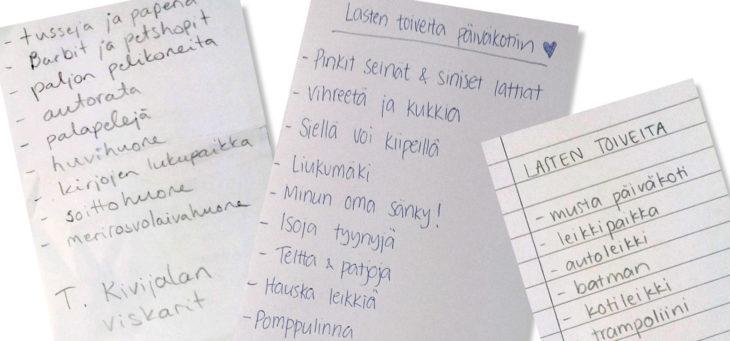 - tusseja ja papería
- Barbit ja petshopit
- paljon pelikoneita
- autorata
- palapelejä
- huvihuone
- kirjojen lukupaikka
- soittohuone
- merirosvolaivahuone
T. Kivijalan
viskarit
Lasten toiveita päiväkotiin
- Pinkit seinät & siniset lattiat
- Vihreetä ja kukkia
- Siellä voi kiipeillä
- Liukumäki
- Minun oma sänky!
- Isoja tyynyjä
- Teltta & patjoja
- Hauska leikkiä
- Pomppulinna
LASTEN TOIVEITA
- musta päiväkoti
- leikkipaikka
- autoleikki
- batman
- kotileikki
trampoliini